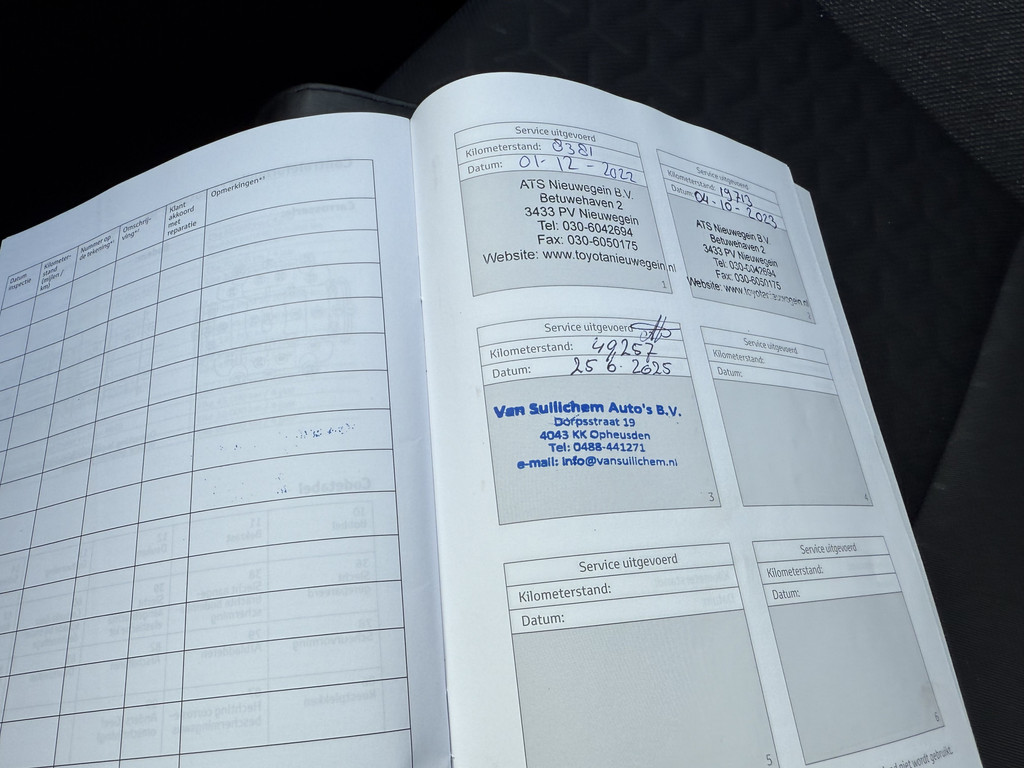 Datum inspectie
Kilometer-stand (mijlen / km)
Nummer op de tekening*¹
Omschrij-ving*²
Klant akkoord met reparatie
Opmerkingen*³
Service uitgevoerd
Kilometerstand: 8381
Datum: 01-12-2022
ATS Nieuwegein B.V.
Betuwehaven 2
3433 PV Nieuwegein
Tel: 030-6042694
Fax: 030-6050175
Website: www.toyotanieuwegein.nl
1
Service uitgevoerd
Kilometerstand: 19713
Datum: 04-10-2023
ATS Nieuwegein B.V.
Betuwehaven 2
3433 PV Nieuwegein
Tel: 030-6042694
Fax: 030-6050175
Website: www.toyotanieuwegein.nl
2
Service uitgevoerd
Kilometerstand: 49257
Datum: 25 6·2025
Van Suilichem Auto's B.V.
Dorpsstraat 19
4043 KK Opheusden
Tel: 0488-441271
e-mail: info@vansuilichem.nl
3
Service uitgevoerd
Kilometerstand:
Datum:
4
Service uitgevoerd
Kilometerstand:
Datum:
5
Service uitgevoerd
Kilometerstand:
Datum:
6
niet wordt gebruikt.